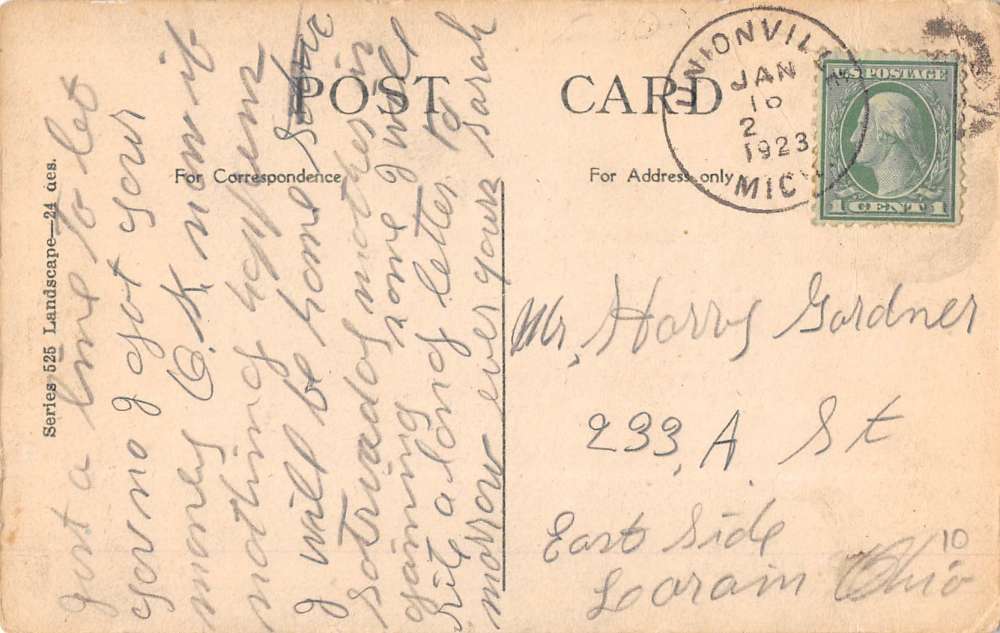 POST CARD
For Correspondence
For Address only
Series 525 Landscape—24 des.
UNIONVILLE
JAN
16
2
1923
MICH
U.S. POSTAGE
1 CENT 1
just a line to let
you no I got your
money O.K. now if
nothing happens
I will be home
soturaday mother is
gaining some I will
rite a long letter to
morrow ever yours Sarah
Mr. Harry Gardner
233, A St
East Side
Lorain Ohio
10